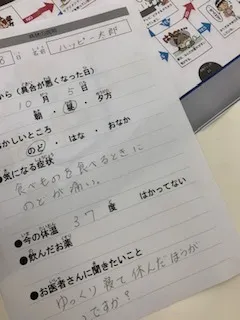 8日 名前 ハッピー太郎
から（具合が悪くなった日）
10月 5日
朝・昼・夕方
かしいところ
のど・はな・おなか
●気になる症状
食べものを食べるときに
のどが痛い。
●今の体温 37度 はかってない
●飲んだお薬
●お医者さんに聞きたいこと
ゆっくり寝て休んだほうが
いですか？